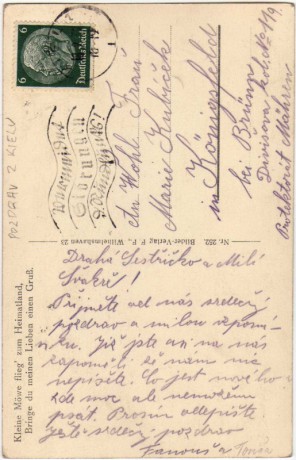 6 6
Deutsches Reich
POZDRAV Z KIELU
An Wohl. Frau
Marie Kubiček
in Königsfeld
bei Brünn
Divisova kol. No 119.
Protektorat Mähren
Nr. 252 Bilder-Verlag F. P. Wilhelmshaven 23
Kleine Möwe flieg' zum Heimatland,
Bringe du meinen Lieben einen Gruß.
Drahá Sestřičko a Milí
Švakře!
Přijměte od nás srdečný
pozdrav a milou vzpomín-
ku. Již jste asi na nás
zapoměli že nám nic
nepíšete. Co jest nového
zde moc ale nemůžeme
psát. Prosím odepište.
Ještě srdečný pozdrav
Fanouš a Tonča